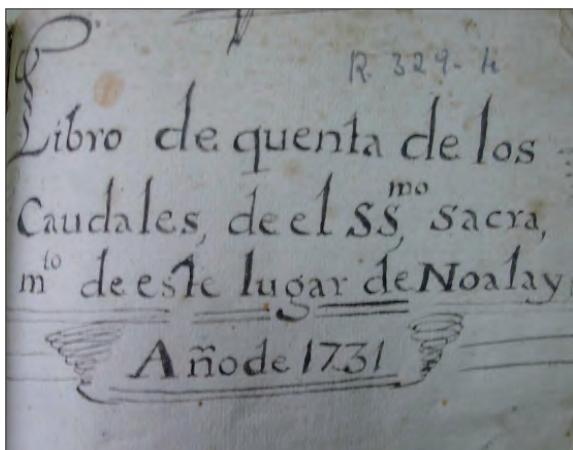 R. 329-4
Libro de quenta de los
Caudales, de el SS,mo sacra,
mto de este lugar de Noalay
Año de 1731